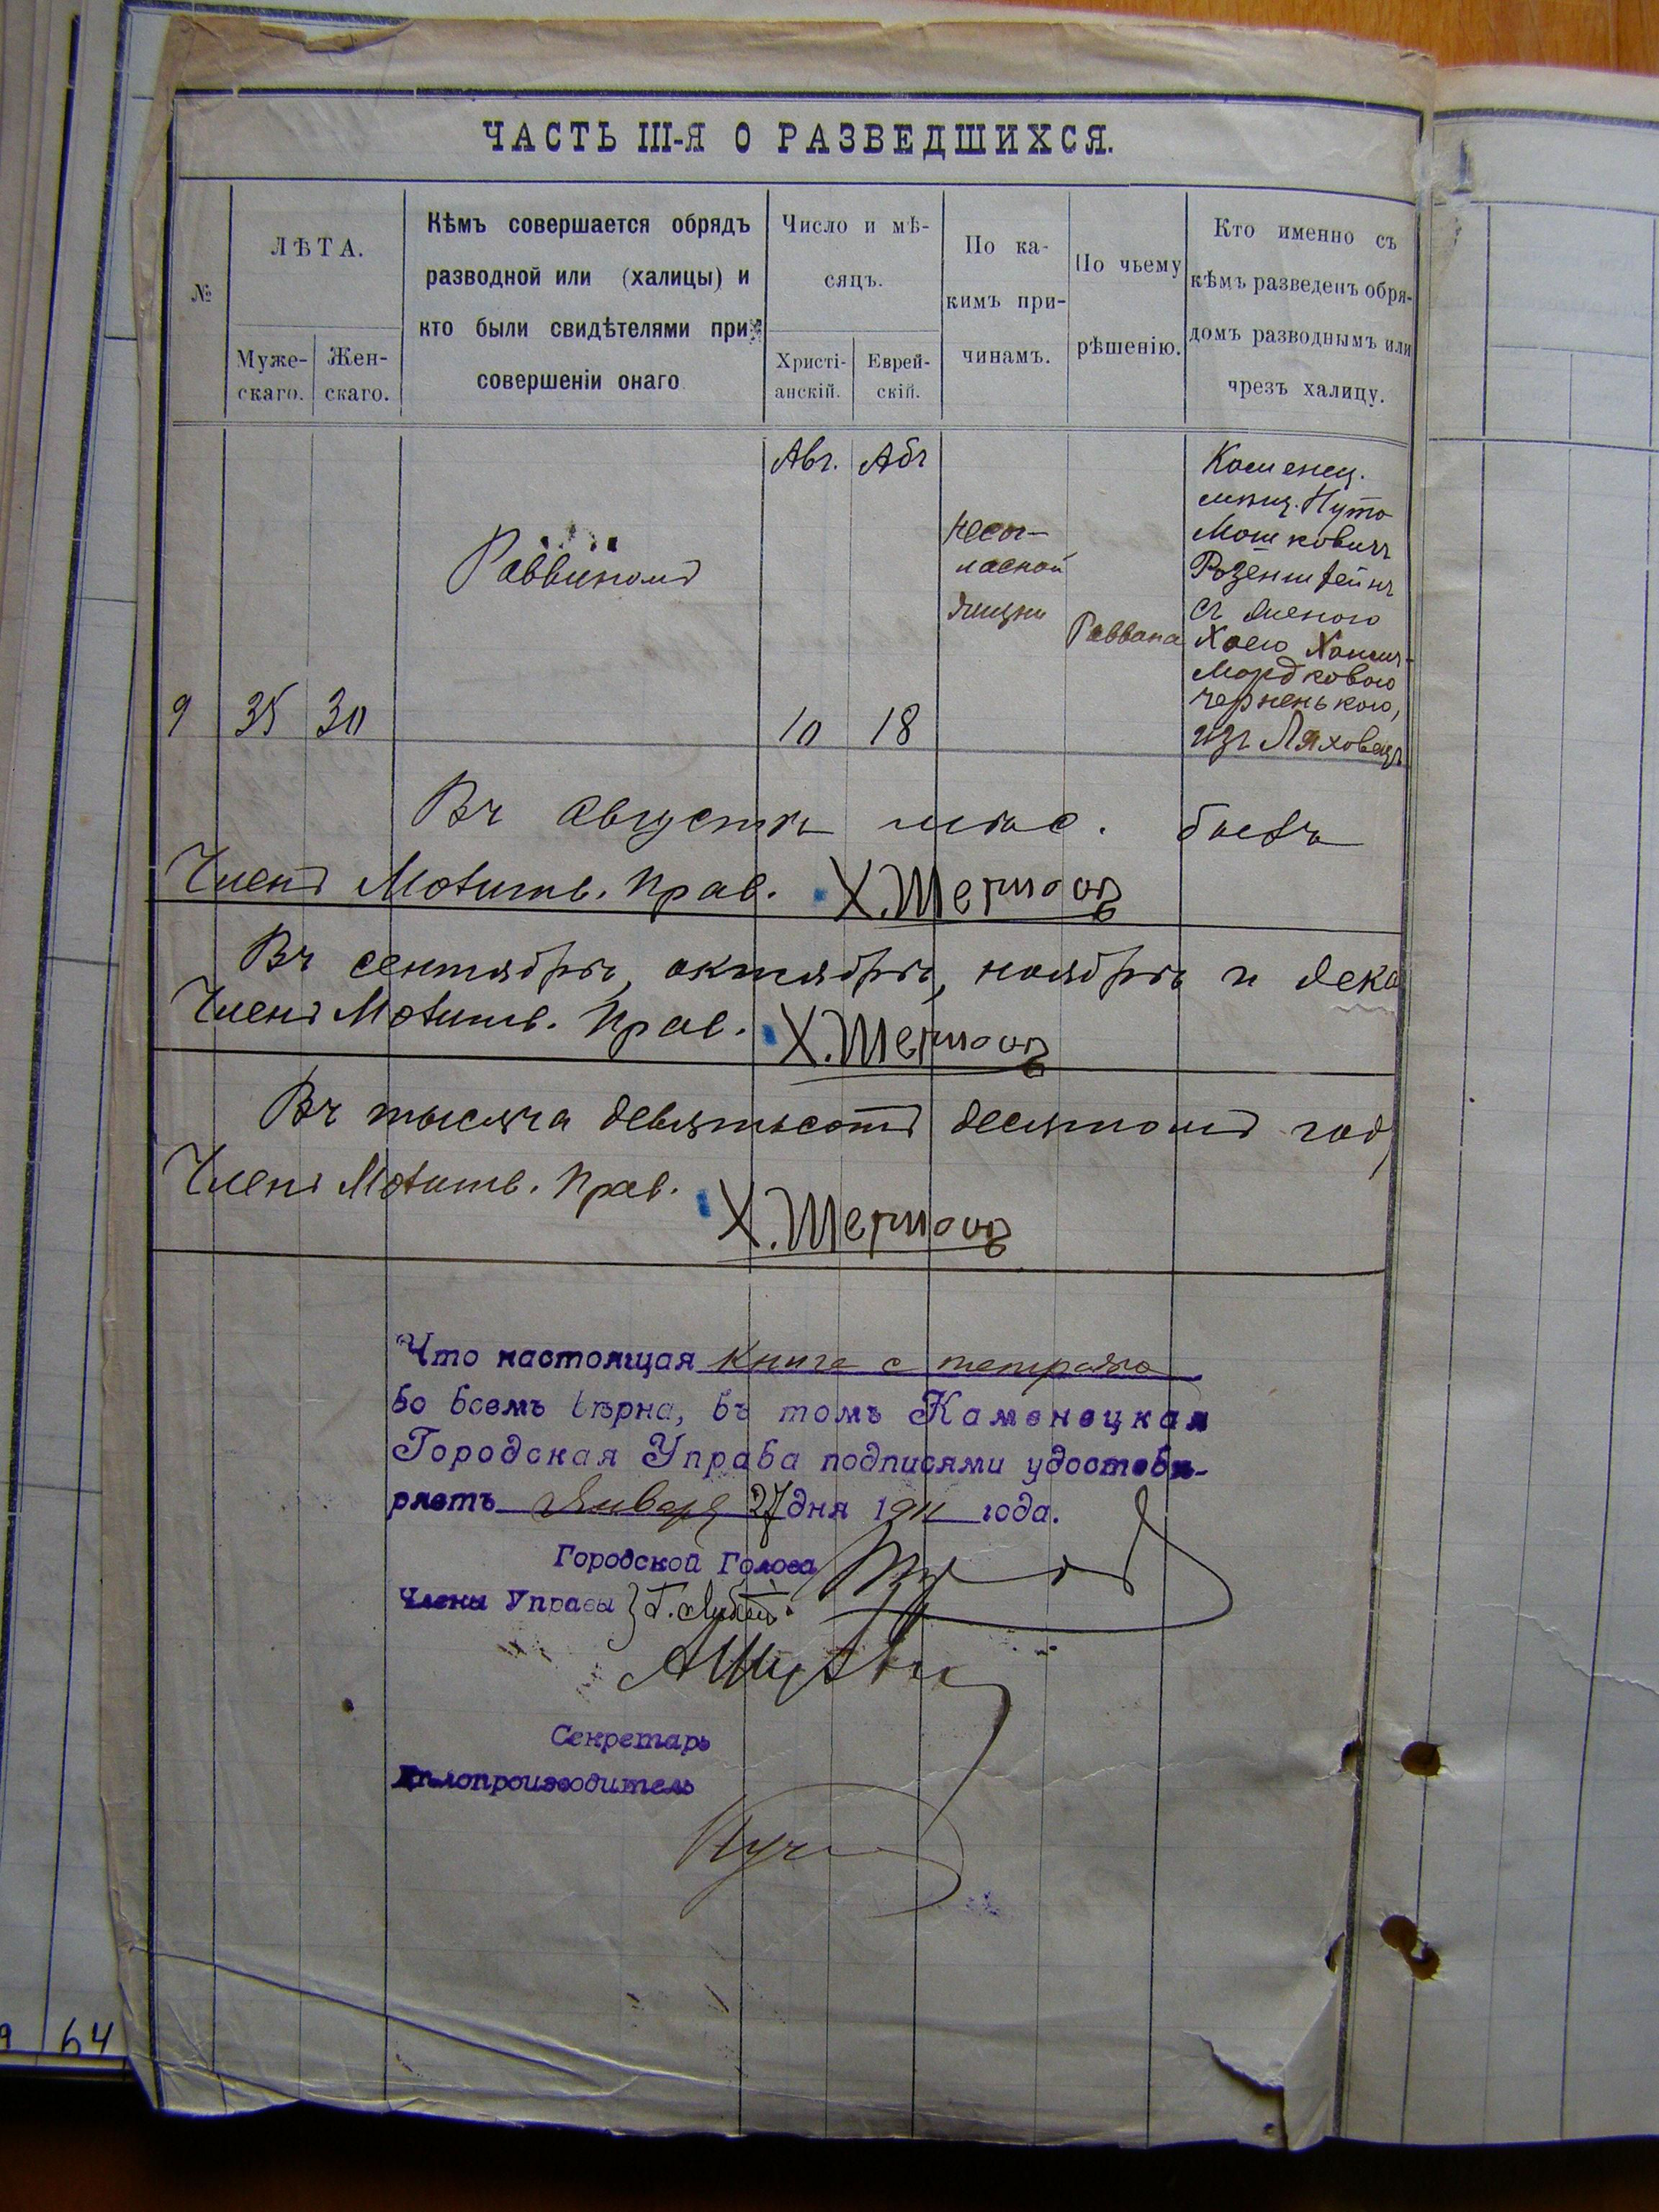 ЧАСТЬ III-Я О РАЗВЕДШИХСЯ.
№
ЛѢТА.
Муже-
скаго.
Жен-
скаго.
Кѣмъ совершается обрядъ
разводной или (халицы) и
кто были свидѣтелями при
совершеніи онаго
Число и мѣ-
сяцъ.
Христі-
анскій.
Еврей-
скій.
По ка-
кимъ при-
чинамъ.
По чьему
рѣшенію.
Кто именно съ
кѣмъ разведенъ обря-
домъ разводнымъ или
чрезъ халицу.
9
35
30
Раввиномъ
Авг.
10
Абъ
18
несог-
ласной
жизни
Раввина
Каменец.
мѣщ. Нута
Мошковичъ
Розенштейнъ
съ женою
Хаею
Мордковою
Черненькою,
изъ Ляховецъ
Въ августѣ мѣс. былъ
Членъ Молитв. Прав. Х.
Въ сентябрѣ, октябрѣ, ноябрѣ и дека
Членъ Молитв. Прав. Х.
Въ тысяча девятьсотъ десятомъ год
Членъ Молитв. Прав.
Х.
Что настоящая книга с
во всемъ вѣрна, въ томъ Каменецкая
Городская Управа подписями удостовѣ-
ряетъ Января 27 дня 1911 года.
Городской Голова
Члены Управы
Секретарь
Дѣлопроизводитель
9 64